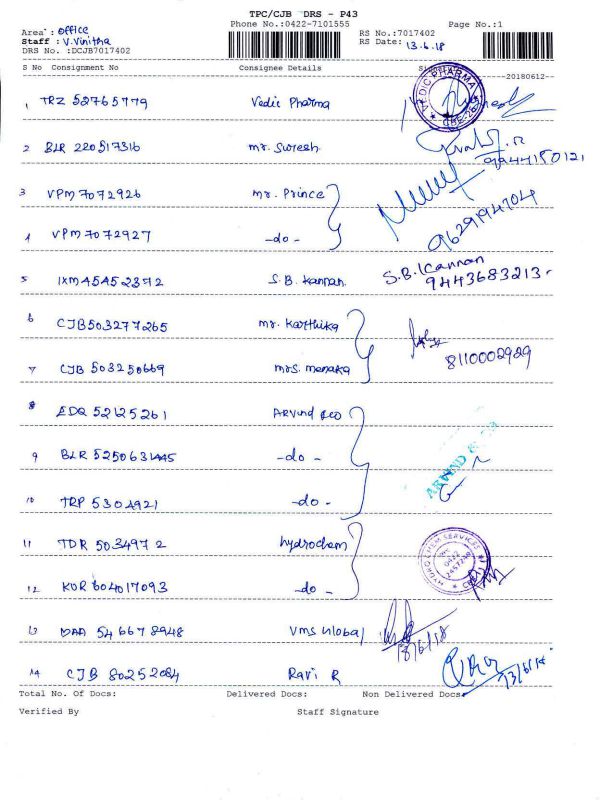 TPC/CJB DRS - P43
Phone No.:0422-7101555 Page No.:1
Area : Office
Staff : V.Vinitha
DRS No. :DCJB7017402
RS No.:7017402
RS Date: 13.6.18
S No Consignment No Consignee Details
--20180612--
1 TRZ 52765779 Vedic Pharma
VEDIC PHARMA
2 BLR 220517316 Mr. Suresh
9944150121
3 VPM 7072926 Mr. Prince
4 VPM 7072927 -do-
9629194704
5 IXM 45452372 S.B. Kannan
S.B. Kannan
9443683213
6 CJB503277265 Mr. Karthika
7 CJB 503250669 Mrs. Menaka
8110002929
8 EDQ 52125261 Arvind &co
9 BLR 5250631445 -do-
ARVIND
10 TRP 5304921 -do-
11 TDR 5034972 hydrochem
HYDRO CHEM SERVICES
12 KUR 604017093 -do-
13 MAA 546678948 VMS Global
14 CJB 80252084 Ravi R
13/6/18
Total No. Of Docs: Delivered Docs: Non Delivered Docs:
Verified By Staff Signature